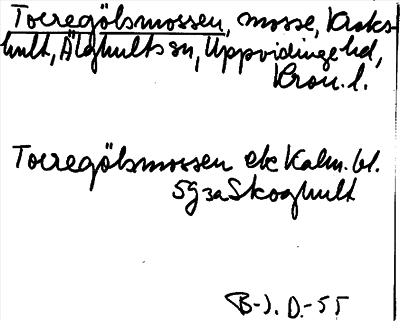 Torregölsmossen, mosse, Kråks-
hult, Älghults sn, Uppvidinge hd,
Kron. l.
Torregölsmossen ek Kalm. bl.
5g3a Skoghult
B-J. D.-55